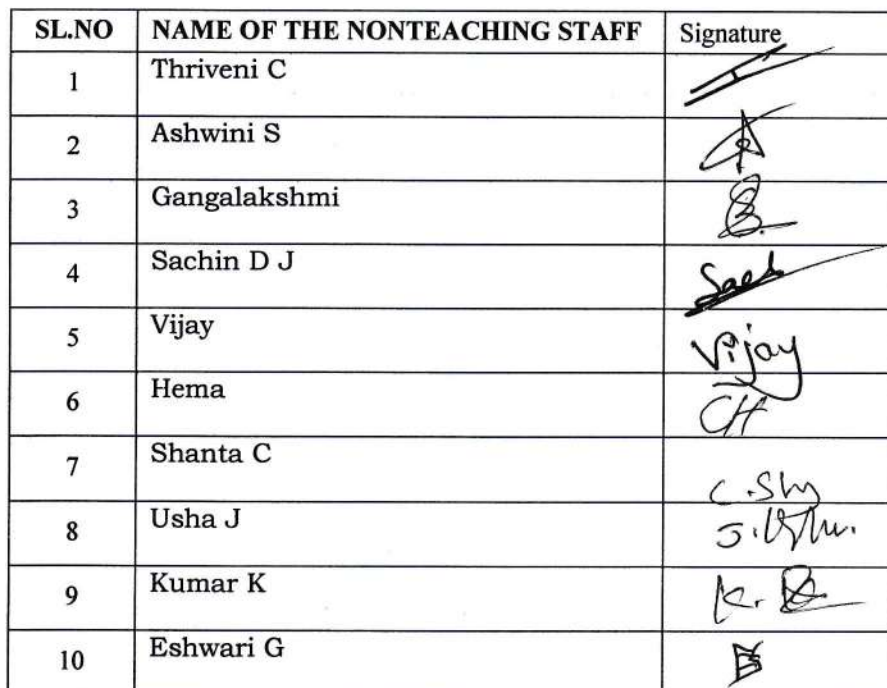 SL.NO NAME OF THE NONTEACHING STAFF Signature
1 Thriveni C
2 Ashwini S
3 Gangalakshmi
4 Sachin D J
5 Vijay Vijay
6 Hema CH
7 Shanta C
8 Usha J
9 Kumar K
10 Eshwari G